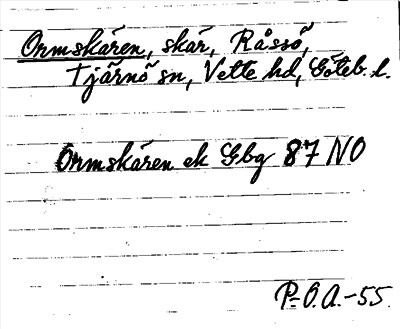 Ormskären, skär, Råssö,
Tjärnö sn, Vette hd, Göteb. l.
Ormskären ek Gbg 87 NO
P-O.A.-55.